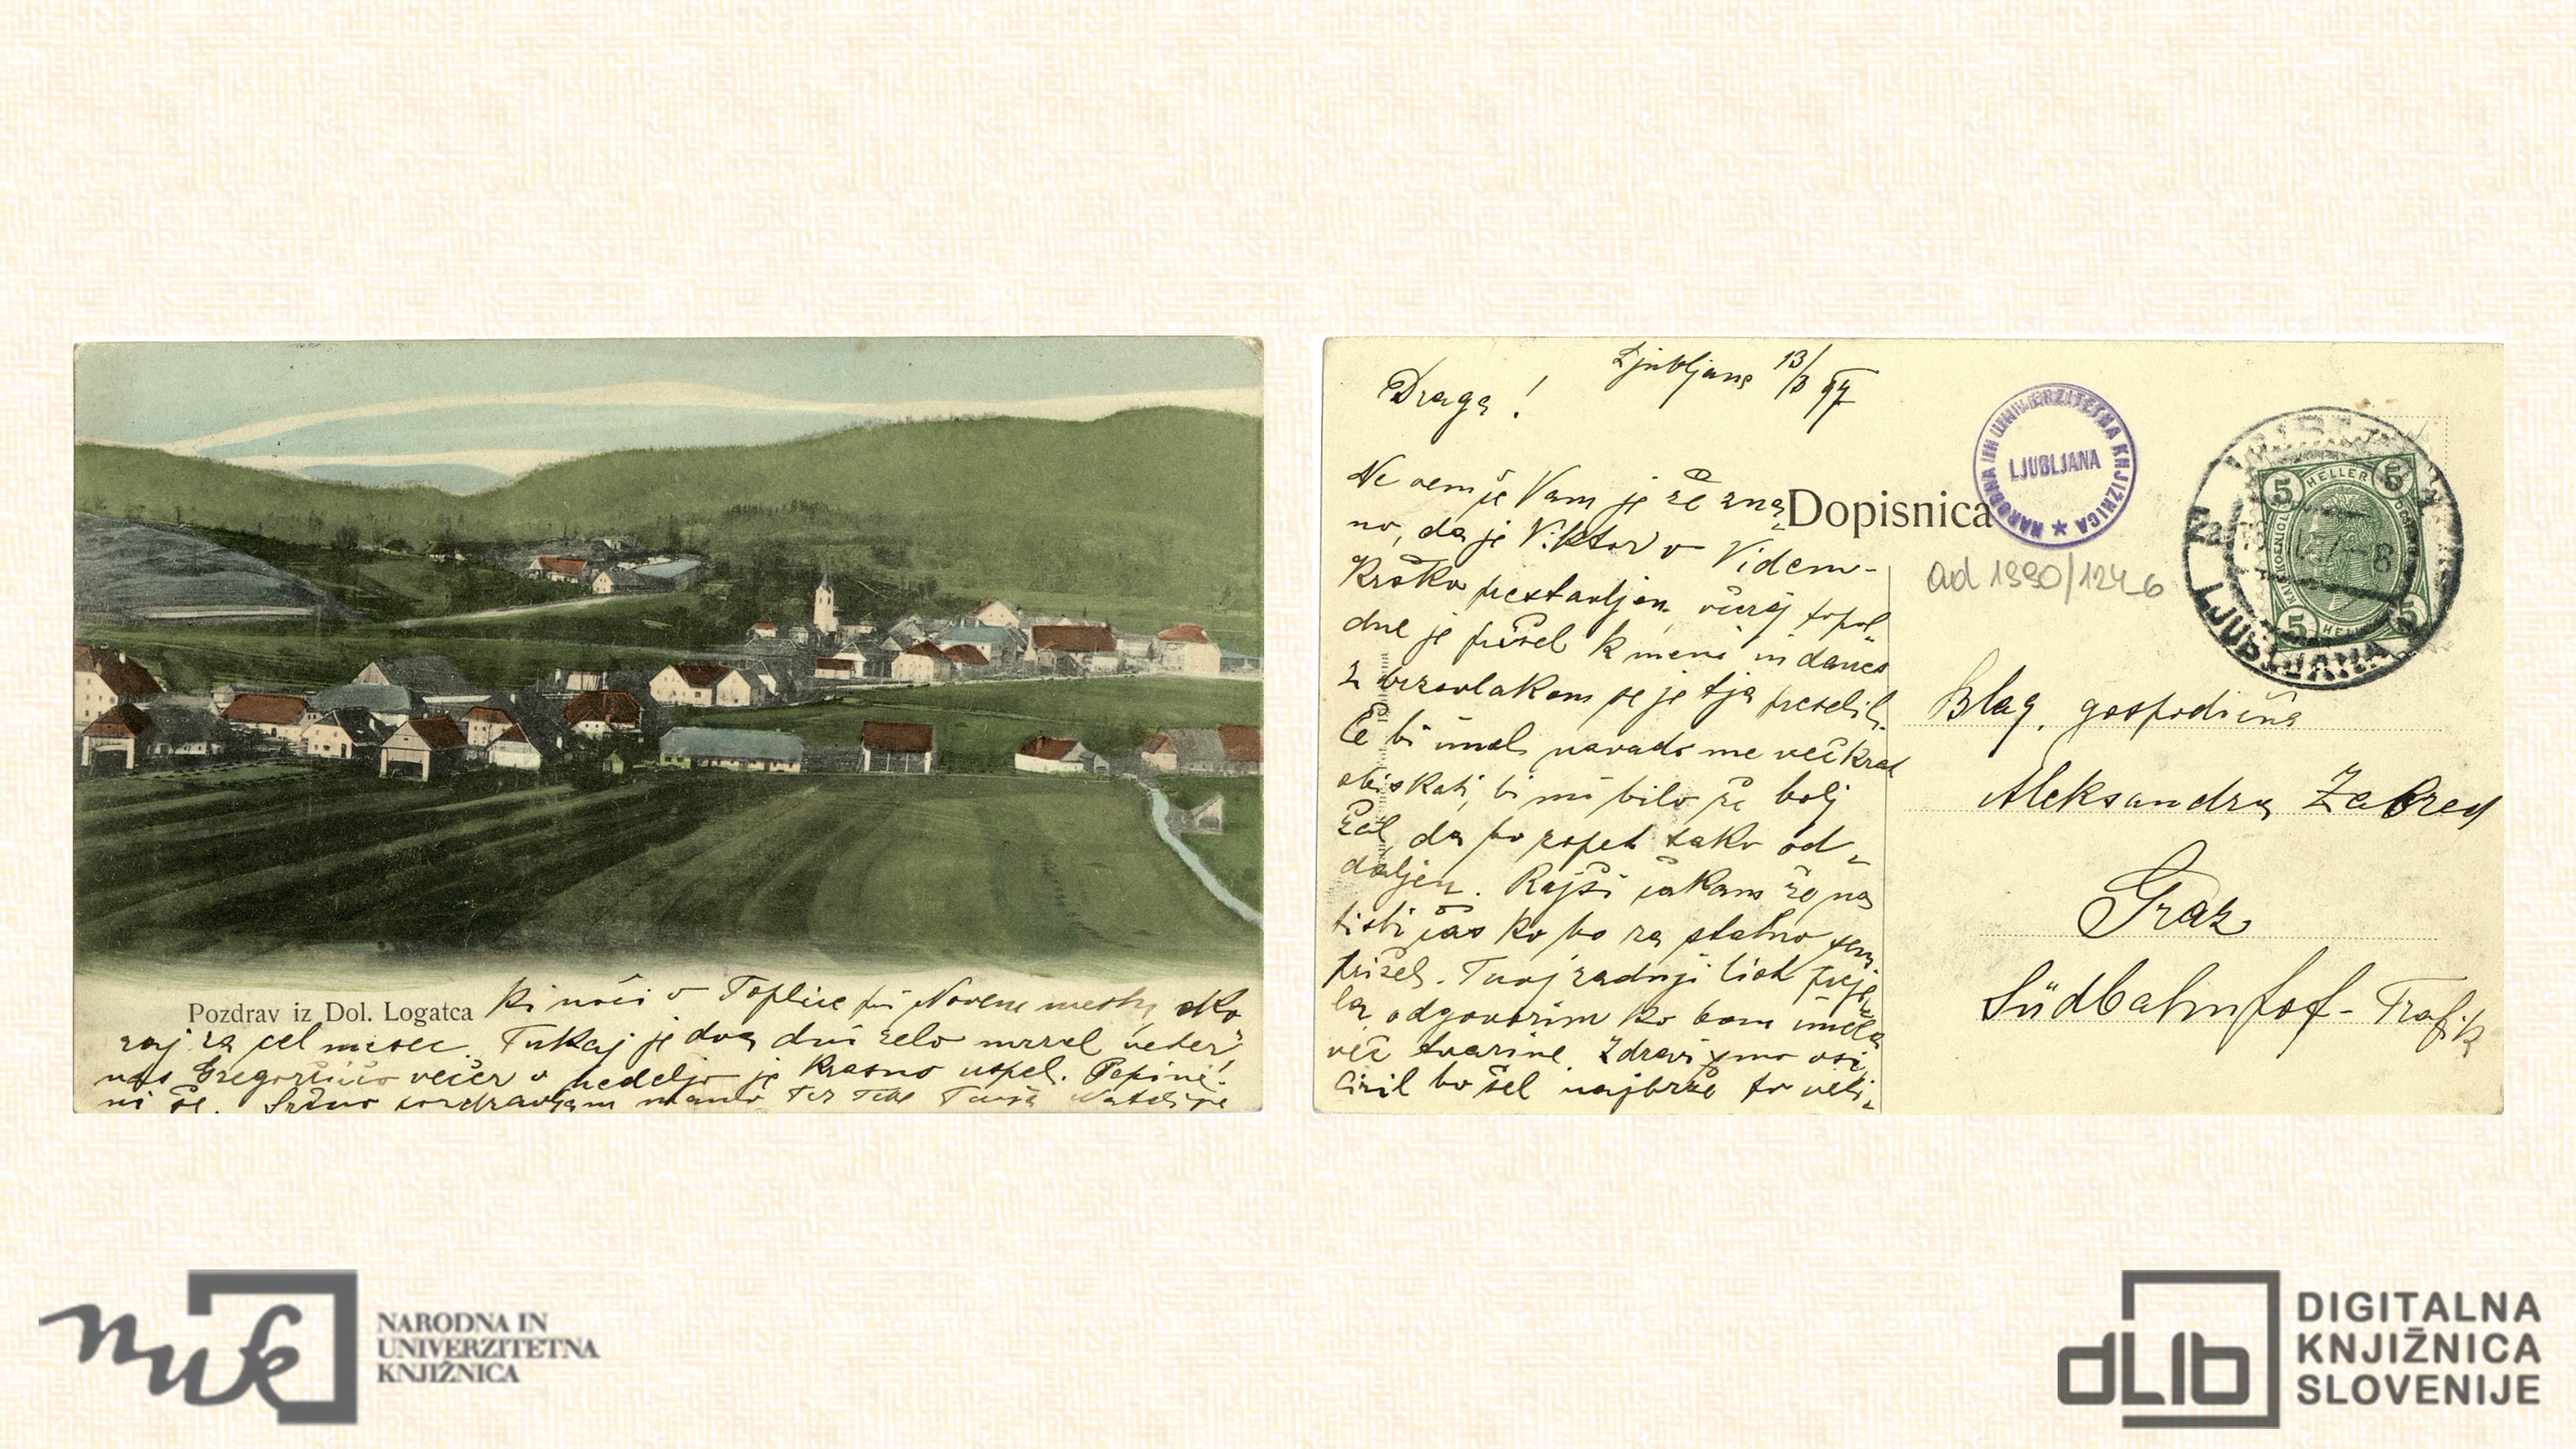 Pozdrav iz Dol. Logatca
ki noči v Toplice pri Novem mestu, sko
raj za cel mesec. Tukaj je dva dni zelo mrzel veter
nas Gregorčičev večer v nedeljo je krasno uspel. Pepine!
ni še. Srčno pozdravljam mamo ter Tebe Tvoja
Ljubljana 13/3 07
Draga!
Ne vem če Vam je že zna-
no, da je Viktor v Videm-
Krško prestavljen, včeraj popol-
dne je prišel k meni in danes
z brzovlakom se je tja preselil.
Če bi imel navado me večkrat
obiskati, bi mi bilo še bolj
žal, da bo zopet tako od-
daljen. Rajši čakam že na
tisti čas ko bo za stalno sem
prišel. Tvoj zadnji list preje-
la, odgovorim ko bom imela
več tvarine. Zdravi smo vsi
Ciril bo šel najbrže po veli-
Dopisnica
NARODNA IN UNIVERZITETNA KNJIŽNICA
LJUBLJANA
ad 1990/1246
5 HELLER 5
LJUBLJANA
Blag. gospodična
Aleksandra
Graz
Südbahnhof - Trafik
nuk
NARODNA IN
UNIVERZITETNA
KNJIŽNICA
dLib
DIGITALNA
KNJIŽNICA
SLOVENIJE